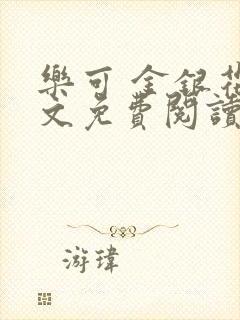 樂可 金銀花
文免費閱讀
游瑋